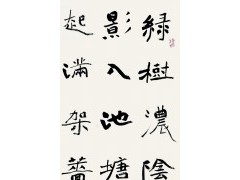 綠樹濃陰
影入池塘
起滿架薔